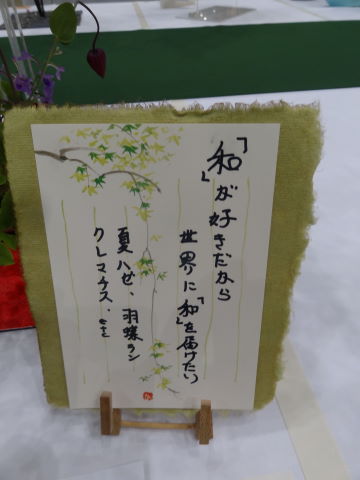 「和」が好きだから
世界に「和」を届けたい
夏ハゼ、羽蝶ラン
クレマチス、